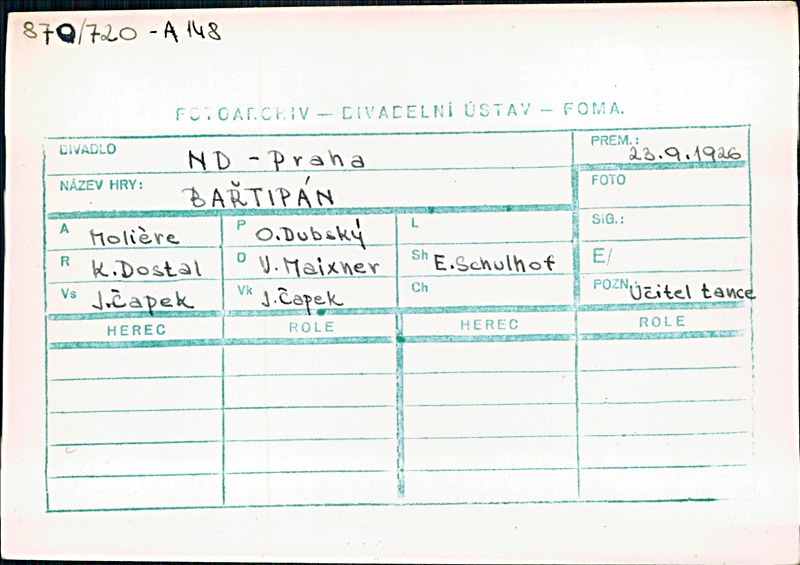 870/720 - A 148
FOTOARCHIV — DIVADELNÍ ÚSTAV — FOMA.
DIVADLO ND - Praha
PREM.: 23.9.1926
NÁZEV HRY: BAŘTIPÁN
FOTO
A Molière P O.Dubský L
SIG.:
R K.Dostal D V.Maixner Sh E.Schulhof
E/
Vs J.Čapek Vk J.Čapek Ch
POZN. Účitel tance
HEREC ROLE HEREC ROLE